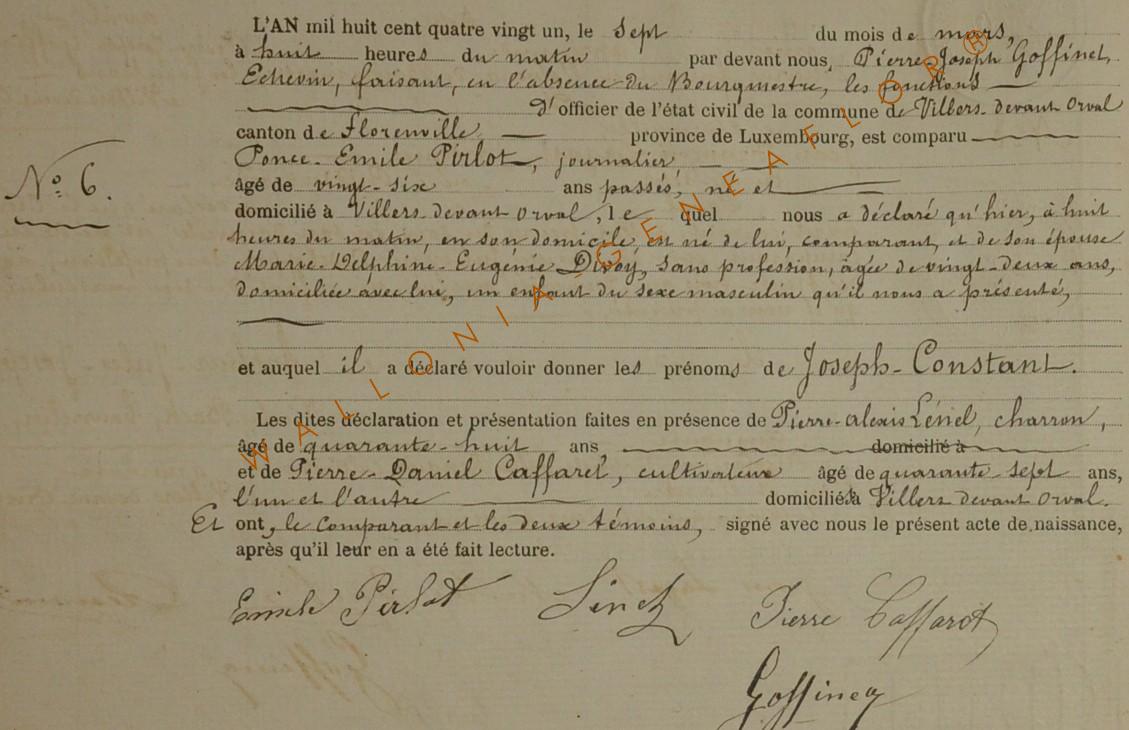 L'AN mil huit cent quatre vingt un, le sept du mois de mars,
à huit heures du matin par devant nous, Pierre Joseph Goffinet,
Echevin, faisant, en l'absence du Bourgmestre, les fonctions
d'officier de l'état civil de la commune de Villers-devant Orval
canton de Florenville province de Luxembourg, est comparu
Ponce-Emile Pirlot, journalier
N° 6.
âgé de vingt-six ans passés, né et
domicilié à Villers devant Orval, lequel nous a déclaré qu'hier, à huit
heures du matin, en son domicile, est né de lui, comparant, et de son épouse
Marie-Delphine-Eugénie, sans profession, âgée de vingt-deux ans,
domiciliée avec lui, un enfant du sexe masculin qu'il nous a présenté,
et auquel il a déclaré vouloir donner les prénoms de Joseph-Constant.
Les dites déclaration et présentation faites en présence de Pierre-alexis, charron,
âgé de quarante-huit ans domicilié à
et de Pierre-Daniel Caffaret, cultivateur âgé de quarante-sept ans,
l'un et l'autre domiciliés à Villers devant Orval.
Et ont, le comparant et les deux témoins, signé avec nous le présent acte de naissance,
après qu'il leur en a été fait lecture.
Emile Pirlot Pierre Caffarot
WALLONIA GENEAFLOR®